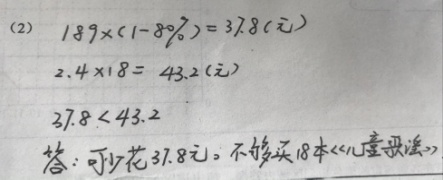 (2) 189×(1-80%)=37.8(元)
2.4×18= 43.2(元)
37.8<43.2
答：可少花37.8元。不够买18本《儿童歌谣》